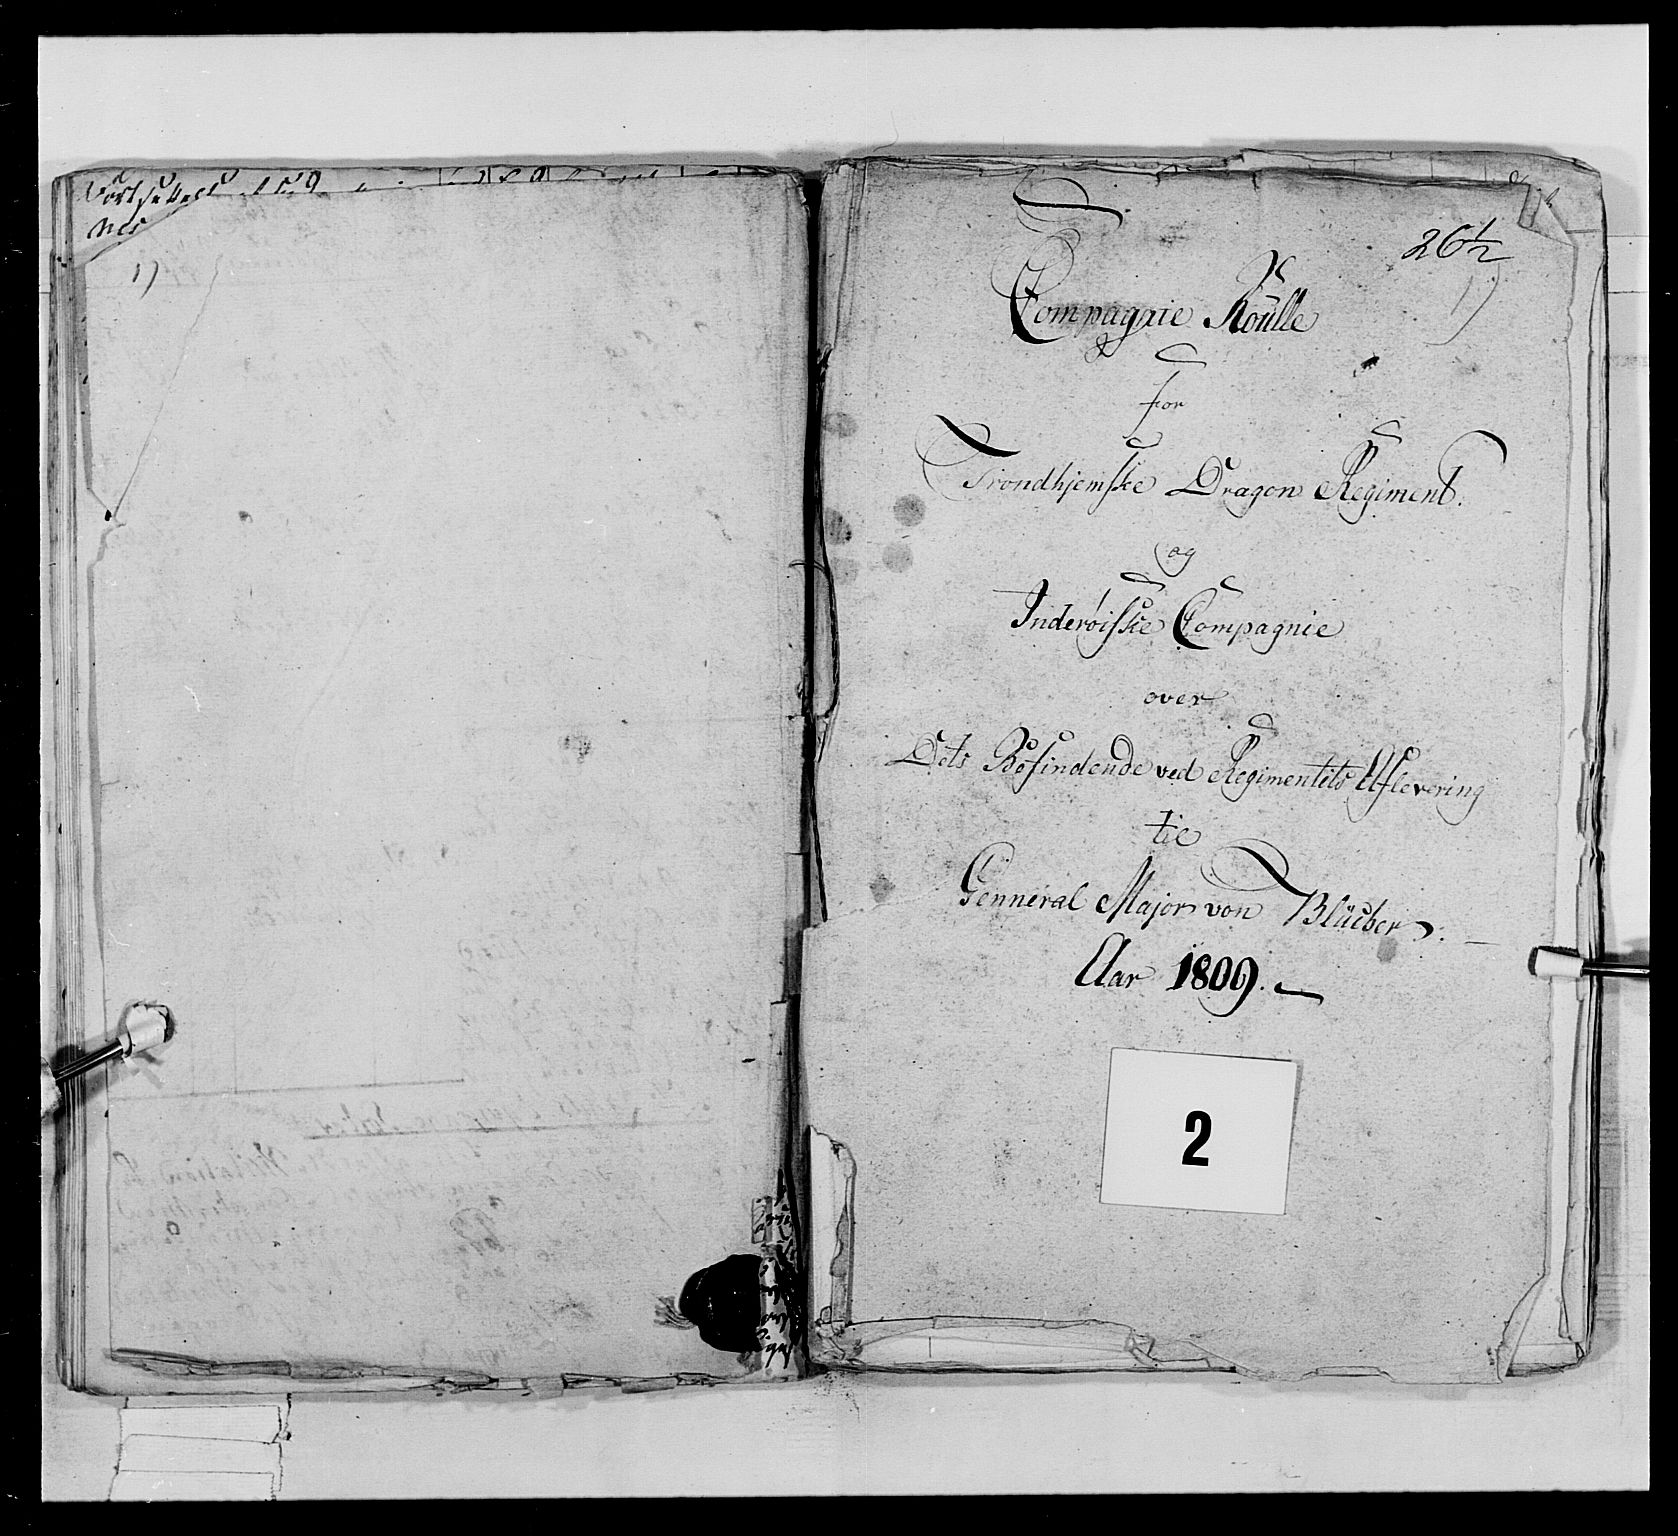 1)
26½
1)
Compagnie Roulle
for
Trondhjemske Dragon Regiment.
og
Inderøiske Compagnie
over
Dets Befindende ved Regimentets Aflevering
til
Genneral Major von Blücher.
Aar 1809.
2